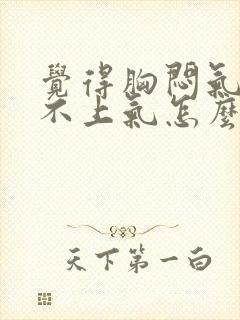 覺得胸悶氣
不上氣怎麼
天下第一白